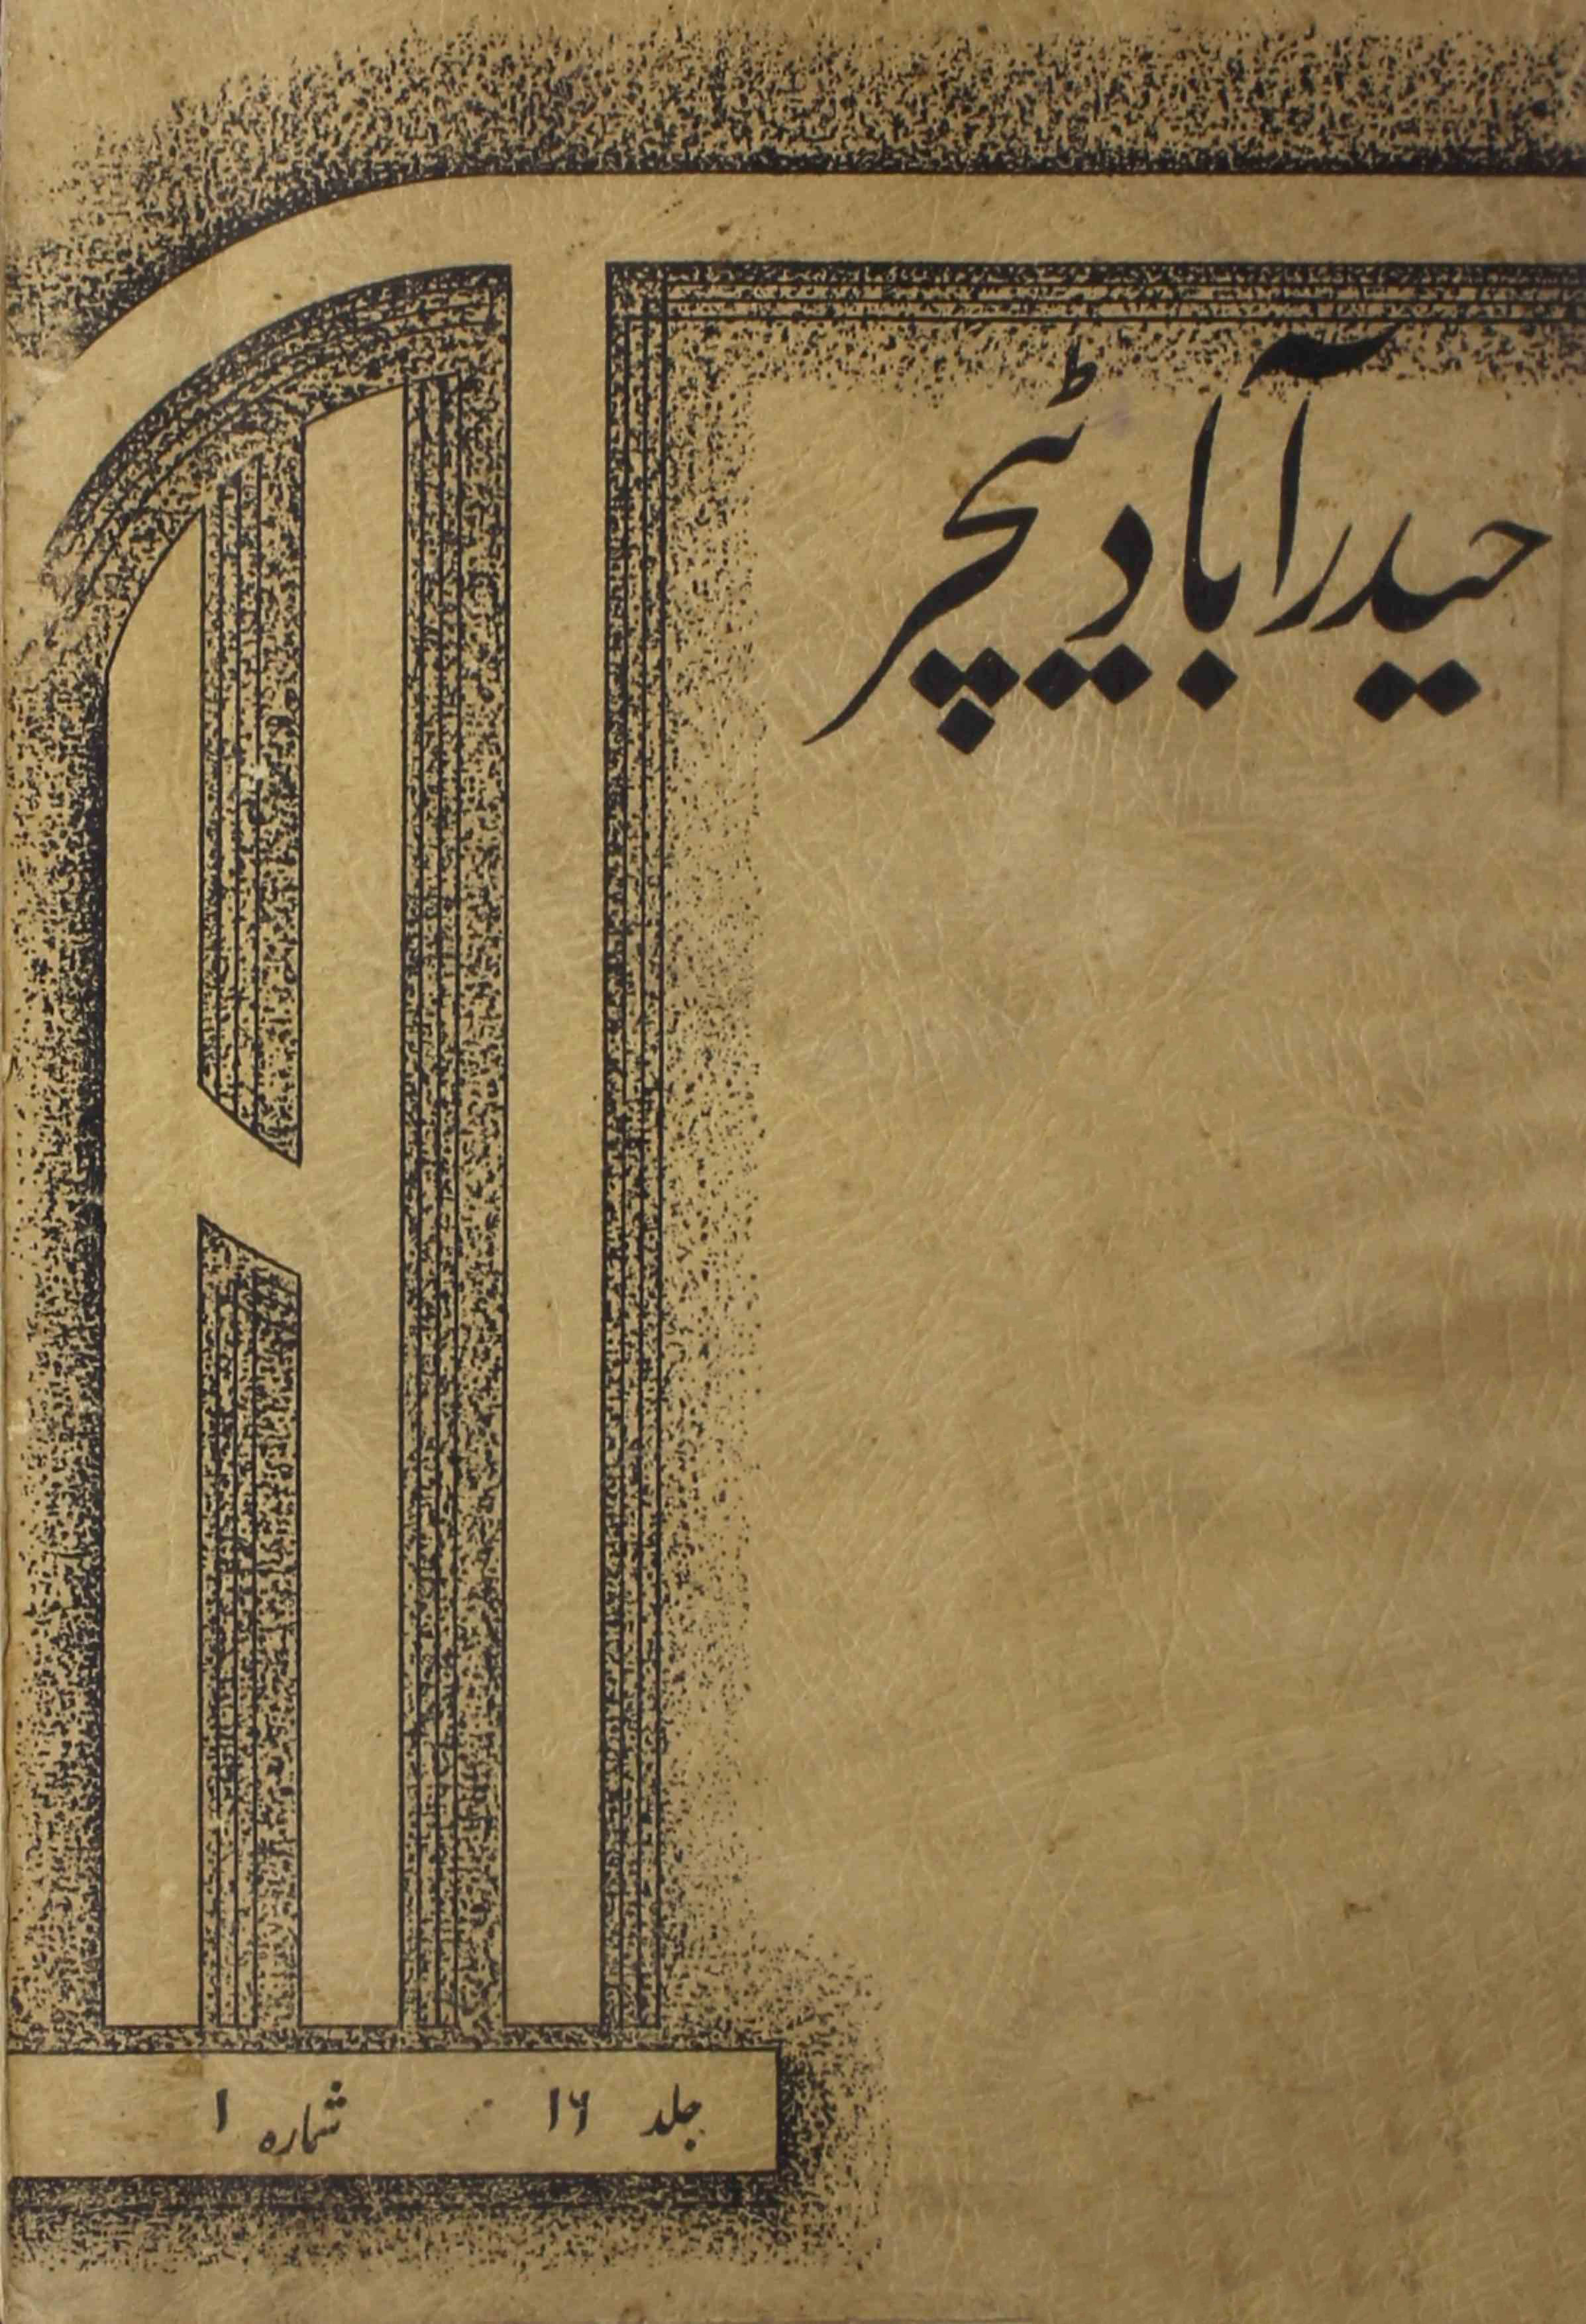 حیدرآباد ٹیچر
جلد ۱۶ شمارہ ۱